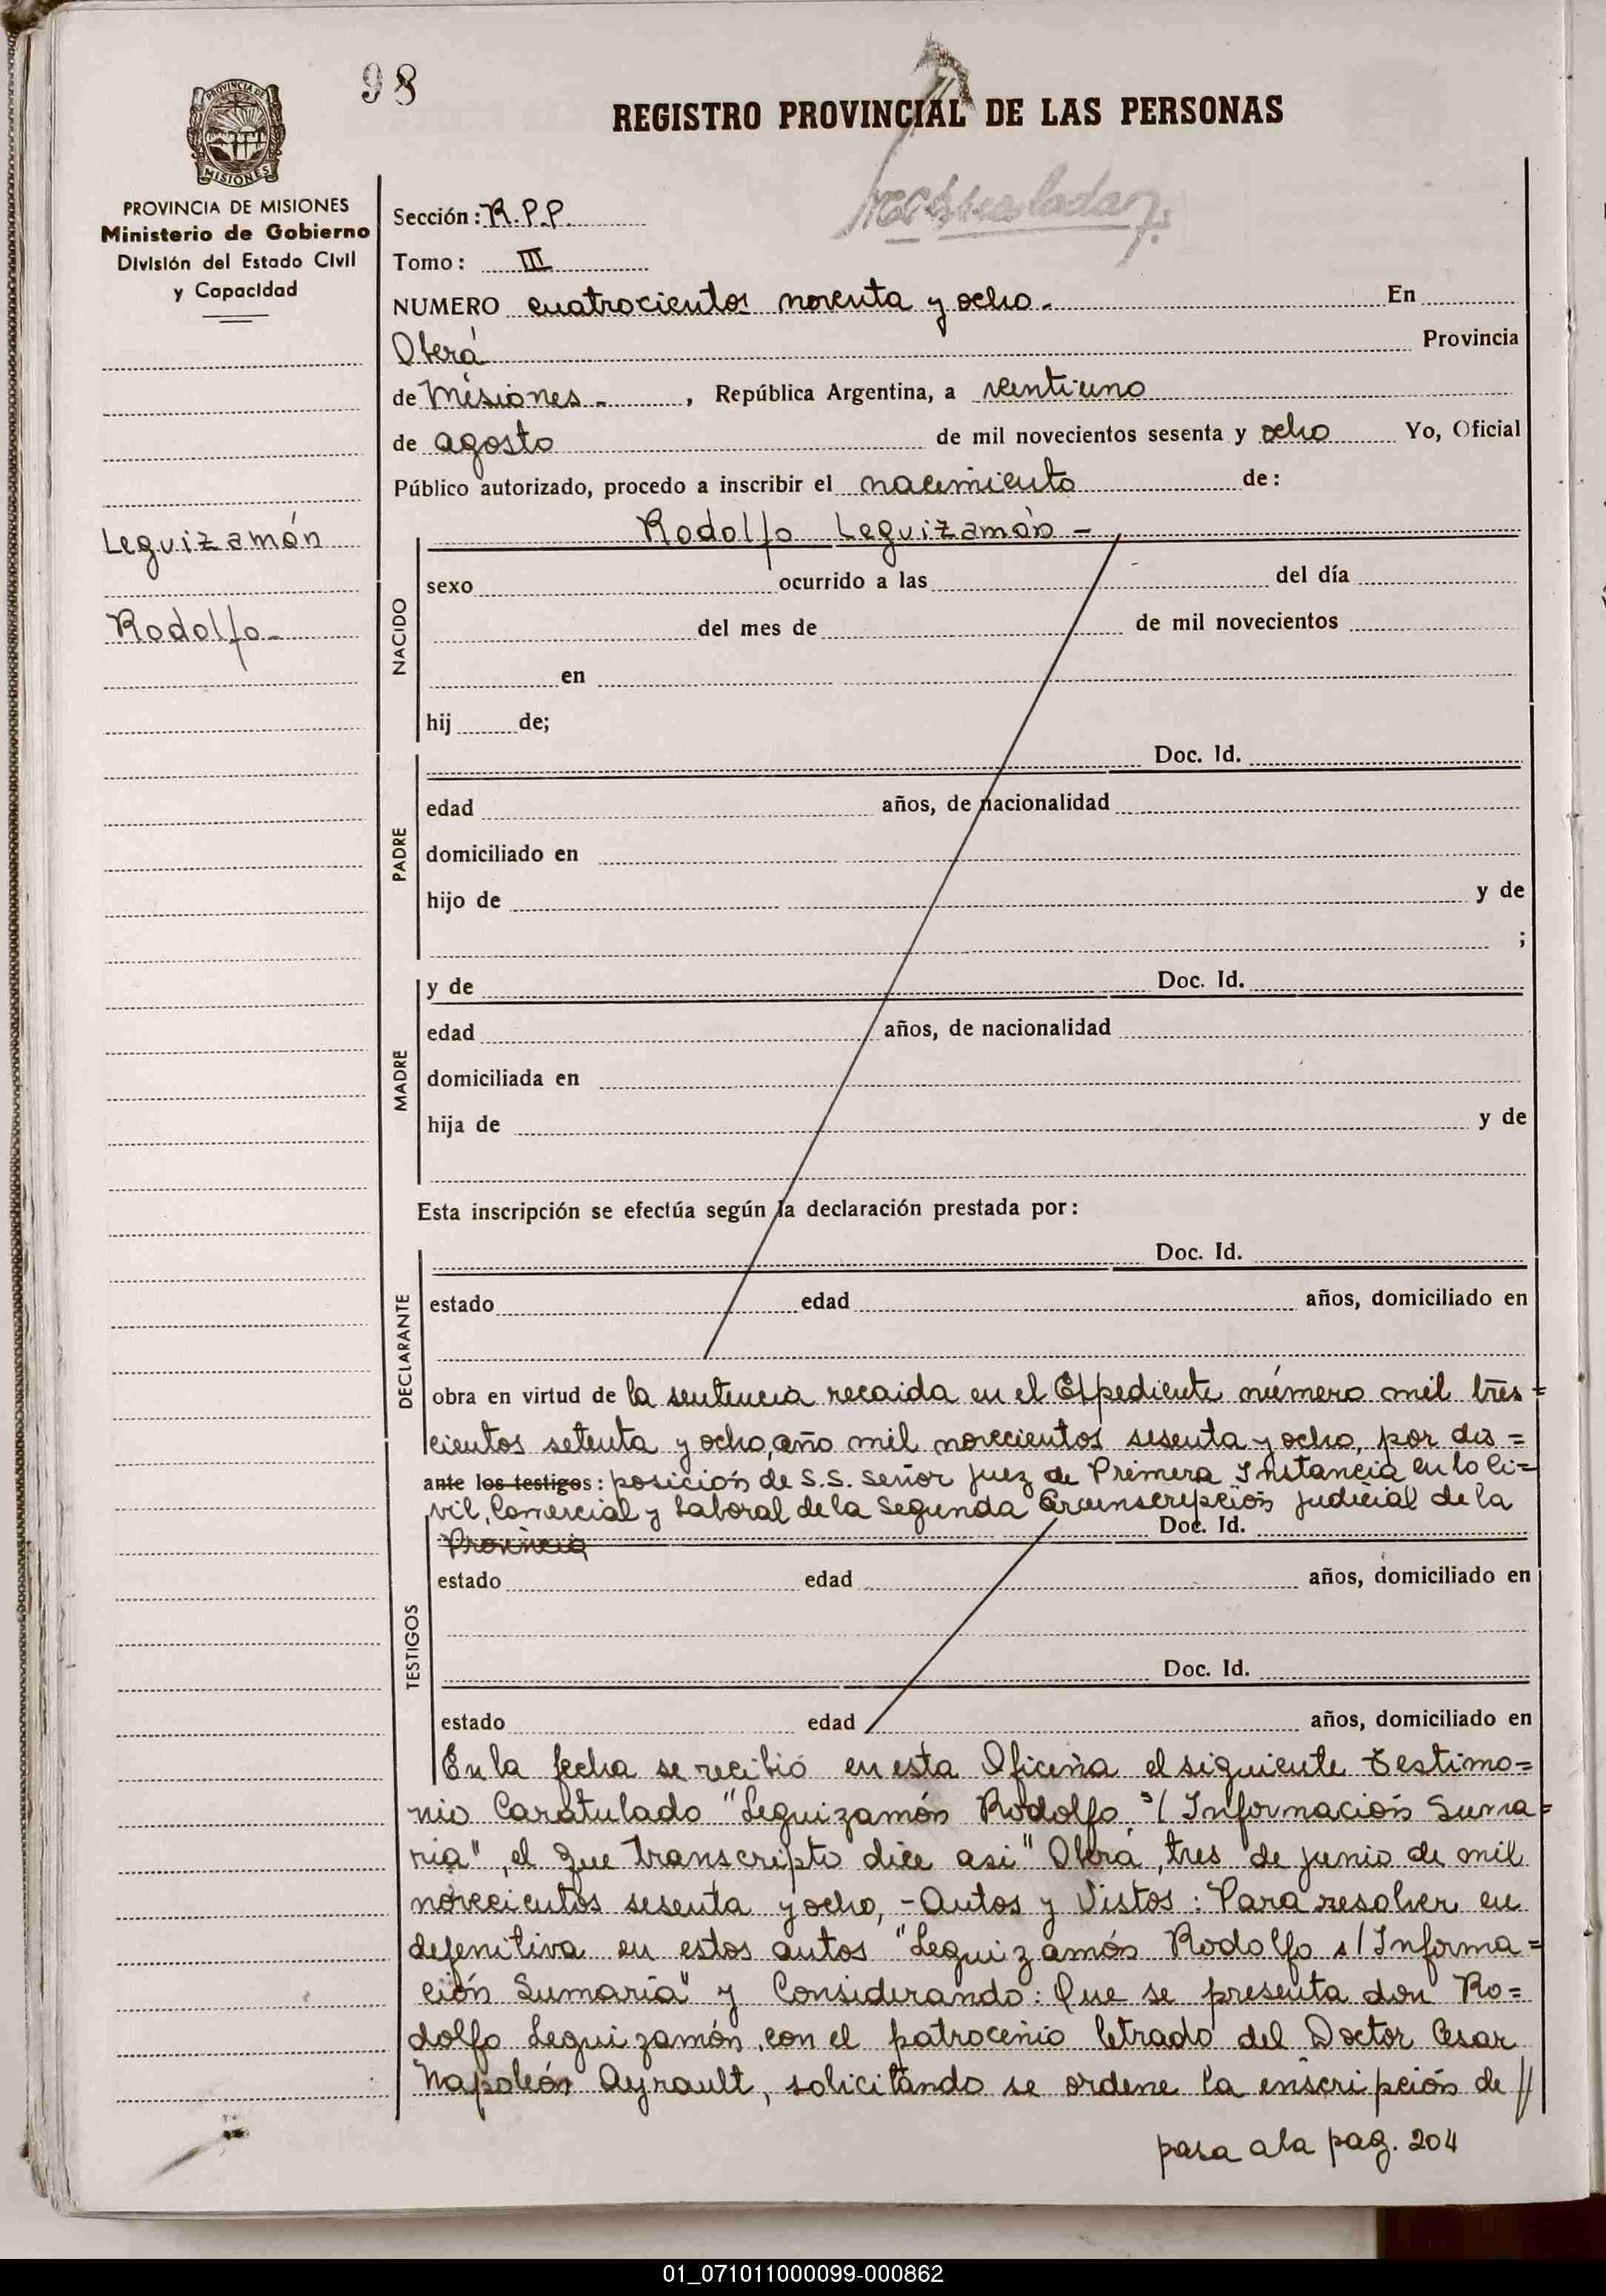 98
REGISTRO PROVINCIAL DE LAS PERSONAS
PROVINCIA DE MISIONES
PROVINCIA DE MISIONES
Ministerio de Gobierno
División del Estado Civil
y Capacidad
Leguizamón
Rodolfo -
Sección: R.P.P.
Tomo: III
NUMERO cuatrocientos noventa y ocho - En
Oberá Provincia
de Misiones - , República Argentina, a veintiuno
de agosto de mil novecientos sesenta y ocho Yo, Oficial
Público autorizado, procedo a inscribir el nacimiento de:
Rodolfo Leguizamón -
NACIDO
sexo ocurrido a las del día
del mes de de mil novecientos
en
hij de;
PADRE
Doc. Id.
edad años, de nacionalidad
domiciliado en
hijo de y de
;
MADRE
y de Doc. Id.
edad años, de nacionalidad
domiciliada en
hija de y de
Esta inscripción se efectúa según la declaración prestada por:
DECLARANTE
Doc. Id.
estado edad años, domiciliado en
obra en virtud de la sentencia recaida en el Expediente número mil tres=
cientos setenta y ocho, año mil novecientos sesenta y ocho, por dis=
ante los testigos: posición de S.S. Señor Juez de Primera Instancia en lo Ci=
vil, Comercial y Laboral de la Segunda Circunscripción Judicial de la
Provincia Doc. Id.
TESTIGOS
estado edad años, domiciliado en
Doc. Id.
estado edad años, domiciliado en
En la fecha se recibió en esta Oficina el siguiente Testimo=
nio Caratulado "Leguizamón Rodolfo s/ Información Suma=
ria", el que transcripto dice asi "Oberá, tres de junio de mil
novecientos sesenta y ocho, - Autos y Vistos: Para resolver en
defenitiva en estos autos "Leguizamón Rodolfo s/ Informa=
ción Sumaria" y Considerando: Que se presenta don Ro=
dolfo Leguizamón, con el patrocinio letrado del Doctor Cesar
Napoleón Ayrault, solicitando se ordene la inscripción de //
pasa a la pag. 204
01_071011000099-000862